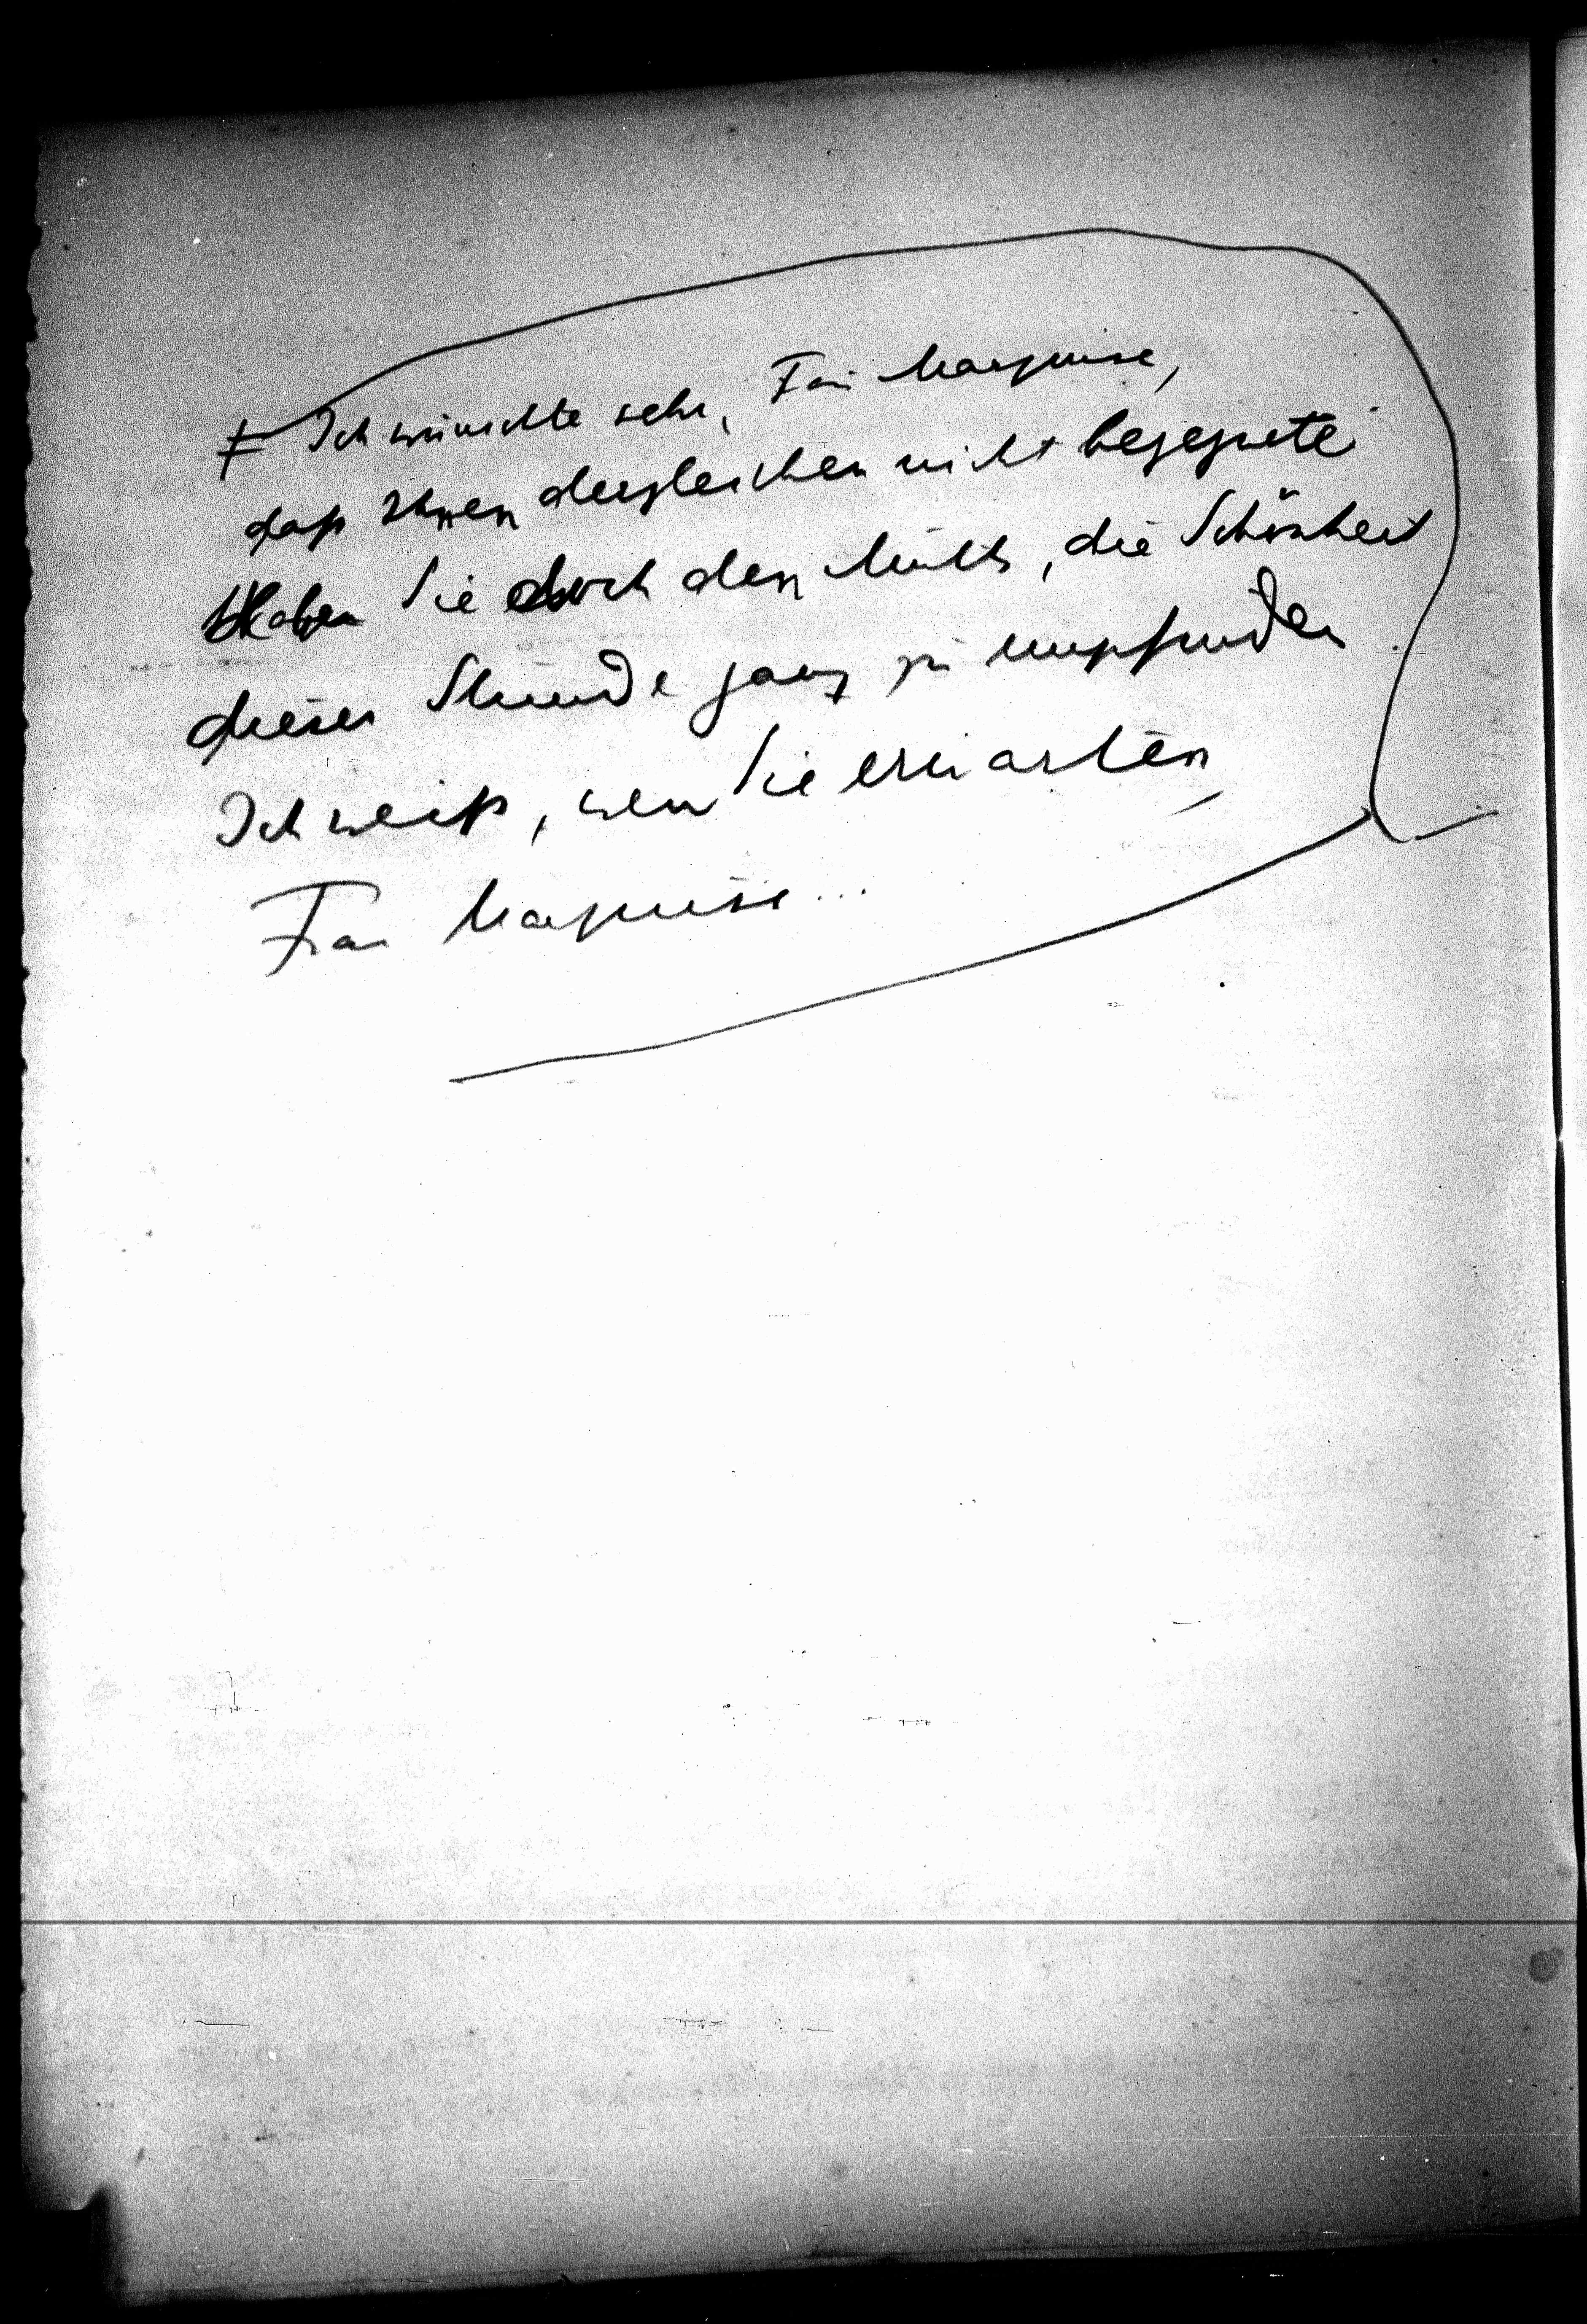 F Ich wünschte sehr, Frau Marquise,
daß Ihnen dergleichen nicht begegnete
Haben Sie doch den Muth, die Schönheit
dieser Stunde ganz zu empfinden
Ich weiß, wen Sie erwarten,
Frau Marquise...